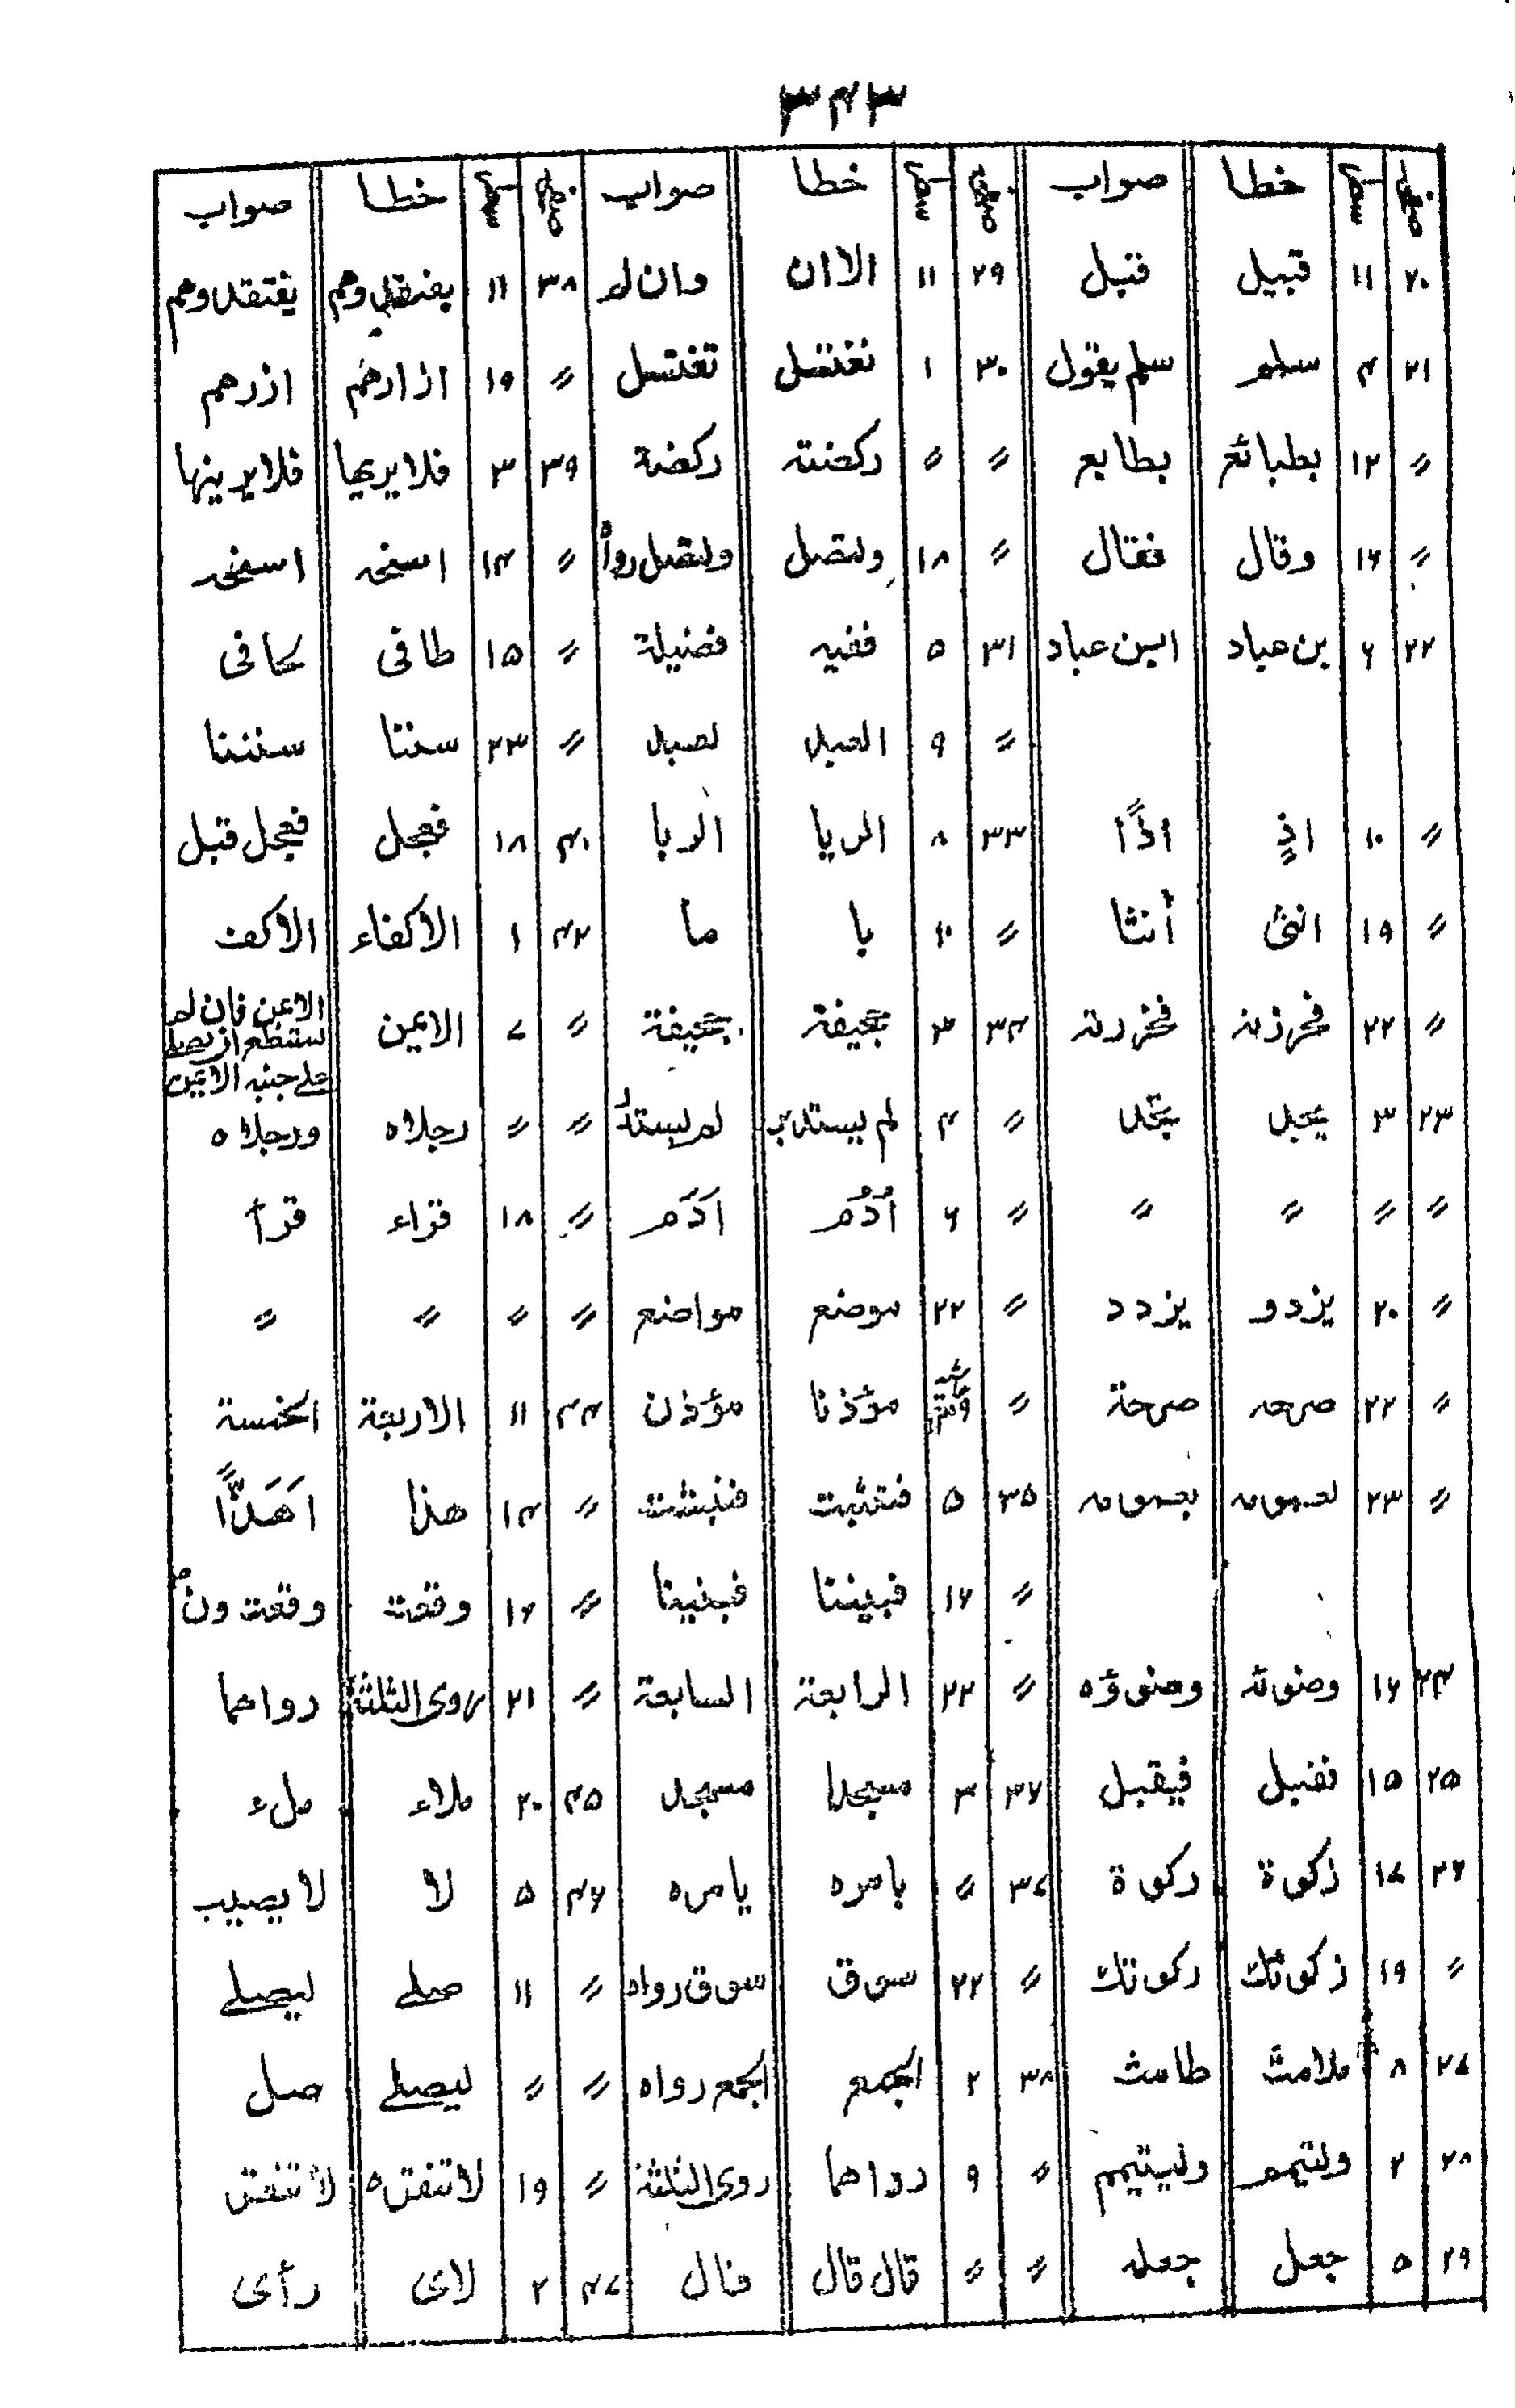 ۳۴۳
صفحہ سطر خطا صواب صفحہ سطر خطا صواب صفحہ سطر خطا صواب
۲۰ ۱۱ قبیل قبل ۲۹ ۱۱ الاان وان لم ۳۸ ۱۱ یفتقدوهم
۲۱ ۴ سلم سلم یقول ۳۰ ۱ تغتسل ” ۱۹ ازارهم ازرهم
” ۱۲ بطبائع بطابع ” ” رکضتہ رکضة ۳۹ ۳ فلایریها فلایرینها
” ۱۶ وقال فقال ” ۱۸ ولتصل ” ۱۴
۲۲ ۶ بن عباد ابن عباد ۳۱ ۵ ففیہ فضیلة ” ۱۵ طافی کافی
” ۹ العبد لعبد ” ۲۳ سنتا سنننا
” ۱۰ اذٍ اذًا ۳۳ ۸ الریا الربا ۴۰ ۱۸ فعجل فعجل قبل
” ۱۹ انثی أنثا ” ۱۰ با ما ۴۲ ۱ الاکفاء الاکف
” ۲۲ ۳۴ ۳ ” ۷ الایمن الایمن فان لم تستطع ان یصلی علے جنبہ الایمن
۲۳ ۳ ” ۴ لم یستدبر ” ” رجلاہ ورجلاہ
” ” ” ” ” ۶ اُدُم اَدَم ” ۱۸ قراء قرأ
” ۲۰ یزدو یزدد ” ۲۲ موضع مواضع ” ” ” ”
” ۲۲ صرحہ صرحة ” مؤذنا مؤذن ۴۴ ۱۱ الاربعة الخمسة
” ۲۳ ۳۵ ۵ فتثبت فنبشت ” ۱۴ هذا اَهَذًّا
” ۱۶ فبیننا فبنینا ” ۱۶ وقعت
۲۴ ۱۶ وضوئہ وضوؤہ ” ۲۲ الرابعة السابعة ” ۲۱ روی الثلثة رواهما
۲۵ ۱۵ فیقبل ۳۶ ۳ مسجدا مسجد ۴۵ ۲۰ ملاء ملء
۲۶ ۱۷ زکوة رکوة ۳۷ ” بامرہ یامرہ ۴۶ ۵ لا لا یصیب
” ۱۹ زکوتک رکوتک ” ۲۲ سوق سوق رواہ ” ۱۱ صلے لیصلے
۲۷ ۸ ملامث طامث ۳۸ ۲ الجمع الجمع رواہ ” ” لیصلے صل
۲۸ ۲ ولتیمم ولیتیمم ” ۹ رواهما روی الثلثة ” ۱۹
۲۹ ۵ جعل جعلہ ” ” قال قال قال ۴۷ ۲ لای رأی